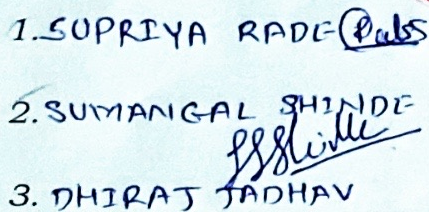 1. SUPRIYA RADE
2. SUMANGAL SHINDE
3. DHIRAJ JADHAV